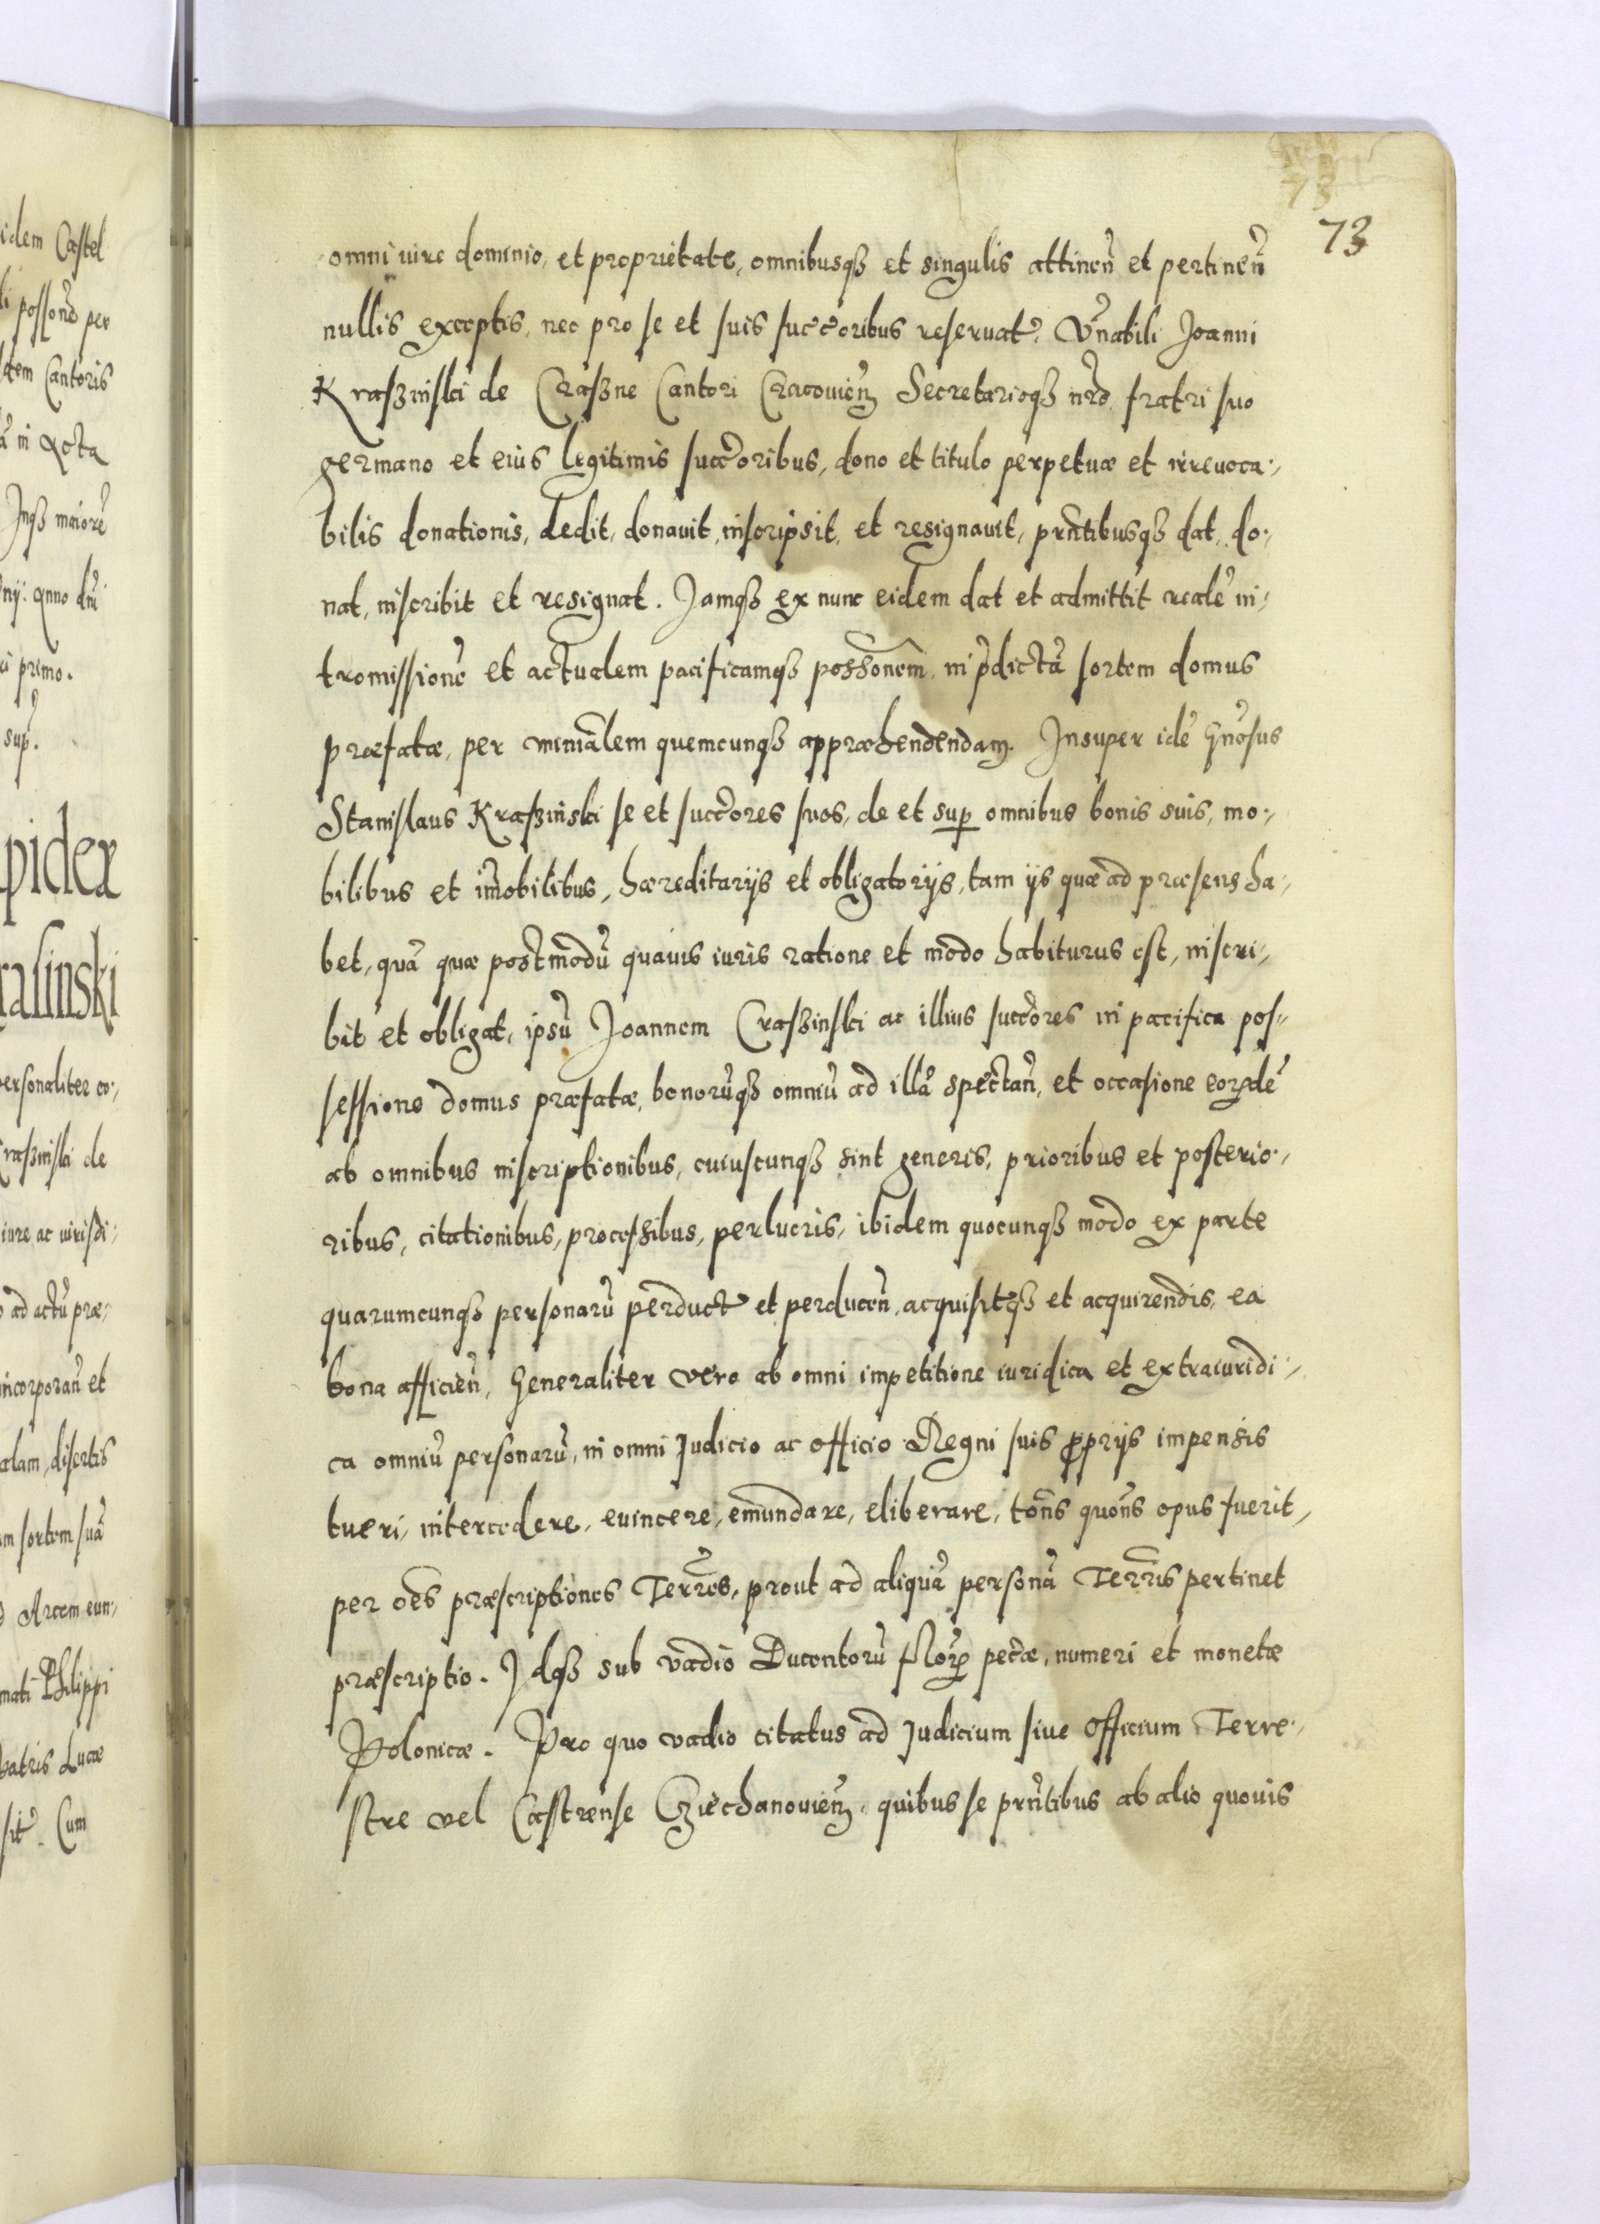 73
omni iure dominio, et proprietate, omnibusqȝ et singulis attinen̄ et pertinen̄
nullis exceptis, nec pro se et suis succ̄oribus reseruat̄, Vn̄abili Joanni
Kraszinski de Craszne Cantori Cracouien̄ Secretarioqȝ nr̄o fratri suo
germano et eius legitimis succ̄oribus, dono et titulo perpetuæ et irreuoca-
bilis donationis, dedit, donauit, inscripsit, et resignauit, prn̄tibusqȝ dat, do-
nat, inscribit et resignat. Jamqȝ ex nunc eidem dat et admittit realē in-
tromissionē et actualem pacificamqȝ possōnem in p̄dictā sortem domus
præfatæ, per miniālem quemcunqȝ appræhendendam. Insuper idē Gn̄osus
Stanislaus Kraszinski se et succ̄ores suos, de et sup̱ omnibus bonis suis, mo-
bilibus et im̄obilibus, hæreditarijs et obligatorijs, tam ijs quæ ad præsens ha-
bet, quā quæ postmodū quauis iuris ratione et modo habiturus est, inscri-
bit et obligat, ipsū Joannem Craszinski ac illius succ̄ores in pacifica pos-
sessione domus præfatæ, bonorūqȝ omniū ad illā spectan̄, et occasione eorꝝdē
ab omnibus inscriptionibus, cuiuscunqȝ sint generis, prioribus et posterio-
ribus, citationibus, processibus, perlucris, ibidem quocunqȝ modo ex parte
quarumcunqȝ personarū perduct̄ et perducen̄, acquisit̄qȝ et acquirendis, ea
bona afficien̄, Generaliter vero ab omni impetitione iuridica et extraiuridi-
ca omniū personarū, in omni Judicio ac officio Regni suis ꝓprijs impensis
tueri, intercedere, euincere, emundare, eliberare, totn̄s quotn̄s opus fuerit,
per oēs præscriptiones Terrēs, prout ad aliquā personā Terrīs pertinet
præscriptio. Idqȝ sub vadio Ducentorū florꝝ pec̄æ, numeri et monetæ
Polonicæ. Pro quo vadio citatus ad Judicium siue Officium Terre-
stre vel Castrense Cziechanouien̄, quibus se prn̄tibus ab alio quouis